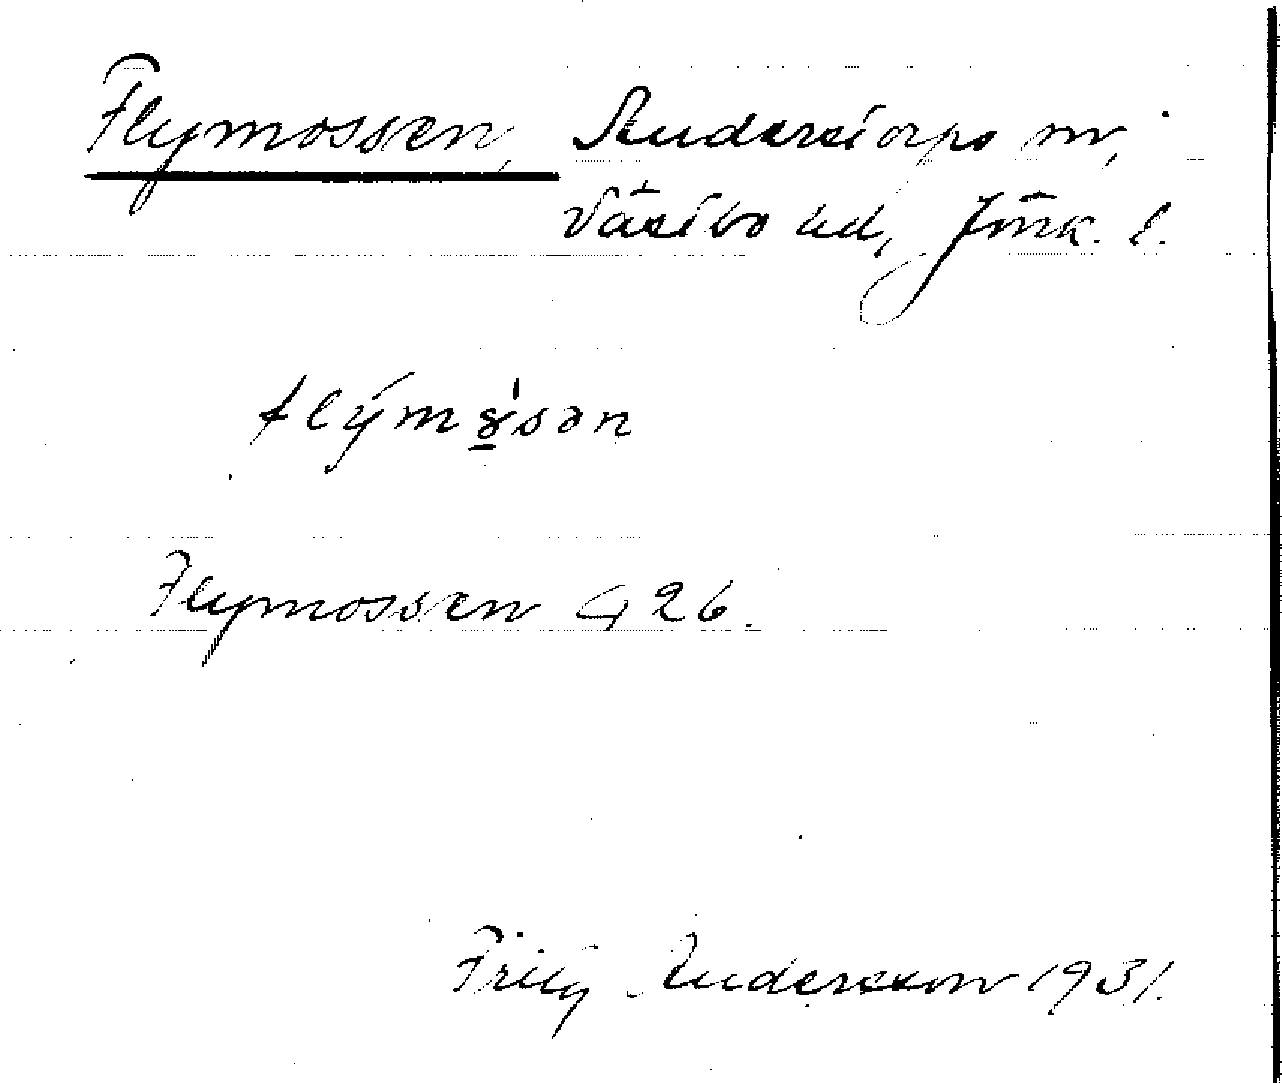 Flymossen, Anderstorps sn,
Västbo hd, Jönk. l.
flýmɤ̱̀sən
Flymossen G 26.
Fritz Andersson 1931.